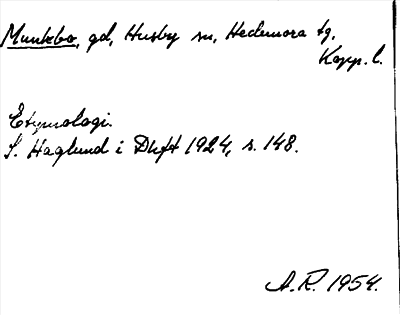 Munkbo, gd, Husby sn, Hedemora tg,
Kopp. l.
Etymologi.
S. Haglund i Dhft 1924, s. 148.
A.R. 1954.